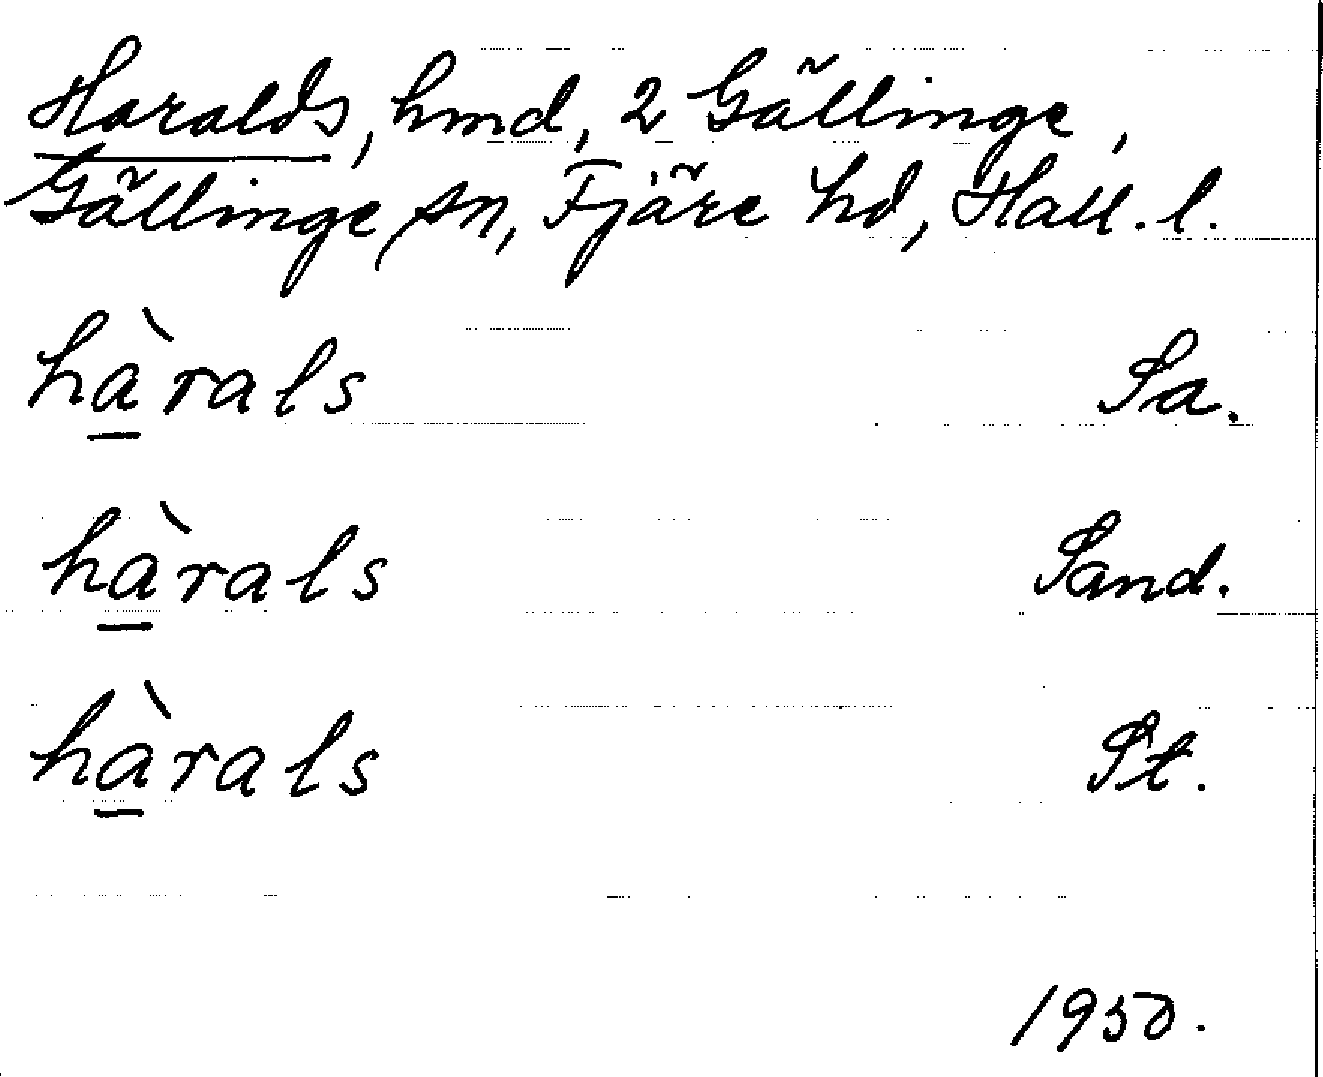 Haralds, hmd, 2 Gällinge,
Gällinge sn, Fjäre hd, Hall. l.
hàrals Sa.
hàrals Sand.
hàrals St.
1950.